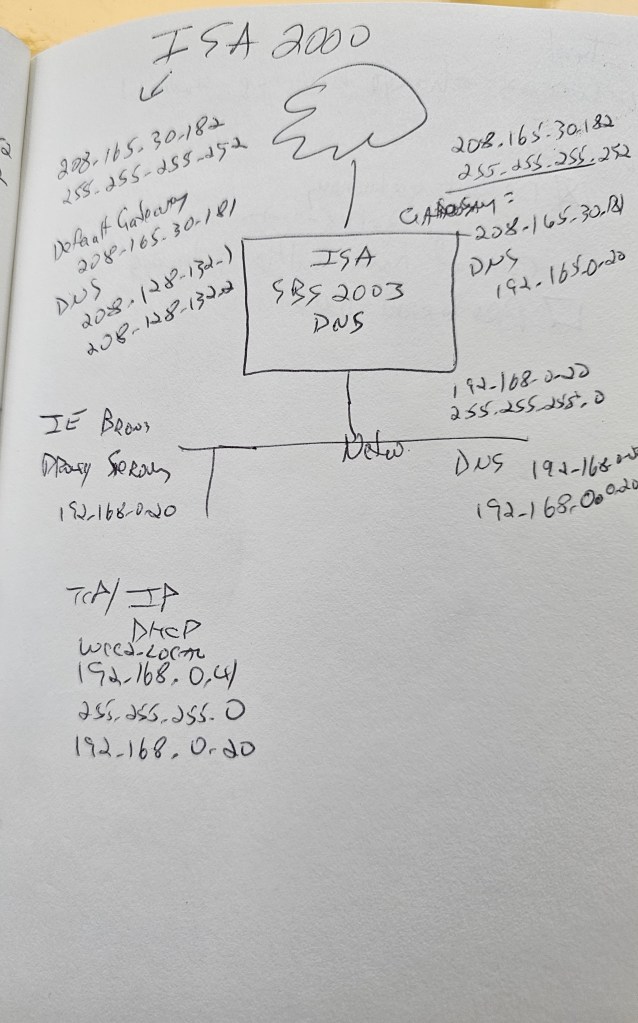 ISA 2000
208-165-30-182
255-255-255-252
Default Gateway
208-165-30-181
DNS
208-128-132-1
208-128-132-2
208-165-30.182
255-255.255.252
208-165-30.181
DNS
192-165-0-20
ISA
SBS 2003
DNS
192-168-0-20
255.255.255.0
IE
192-168-0-20
DNS 192-168
192-168.0
TCP/IP
DHCP
192-168.0.41
255.255.255.0
192-168.0-20